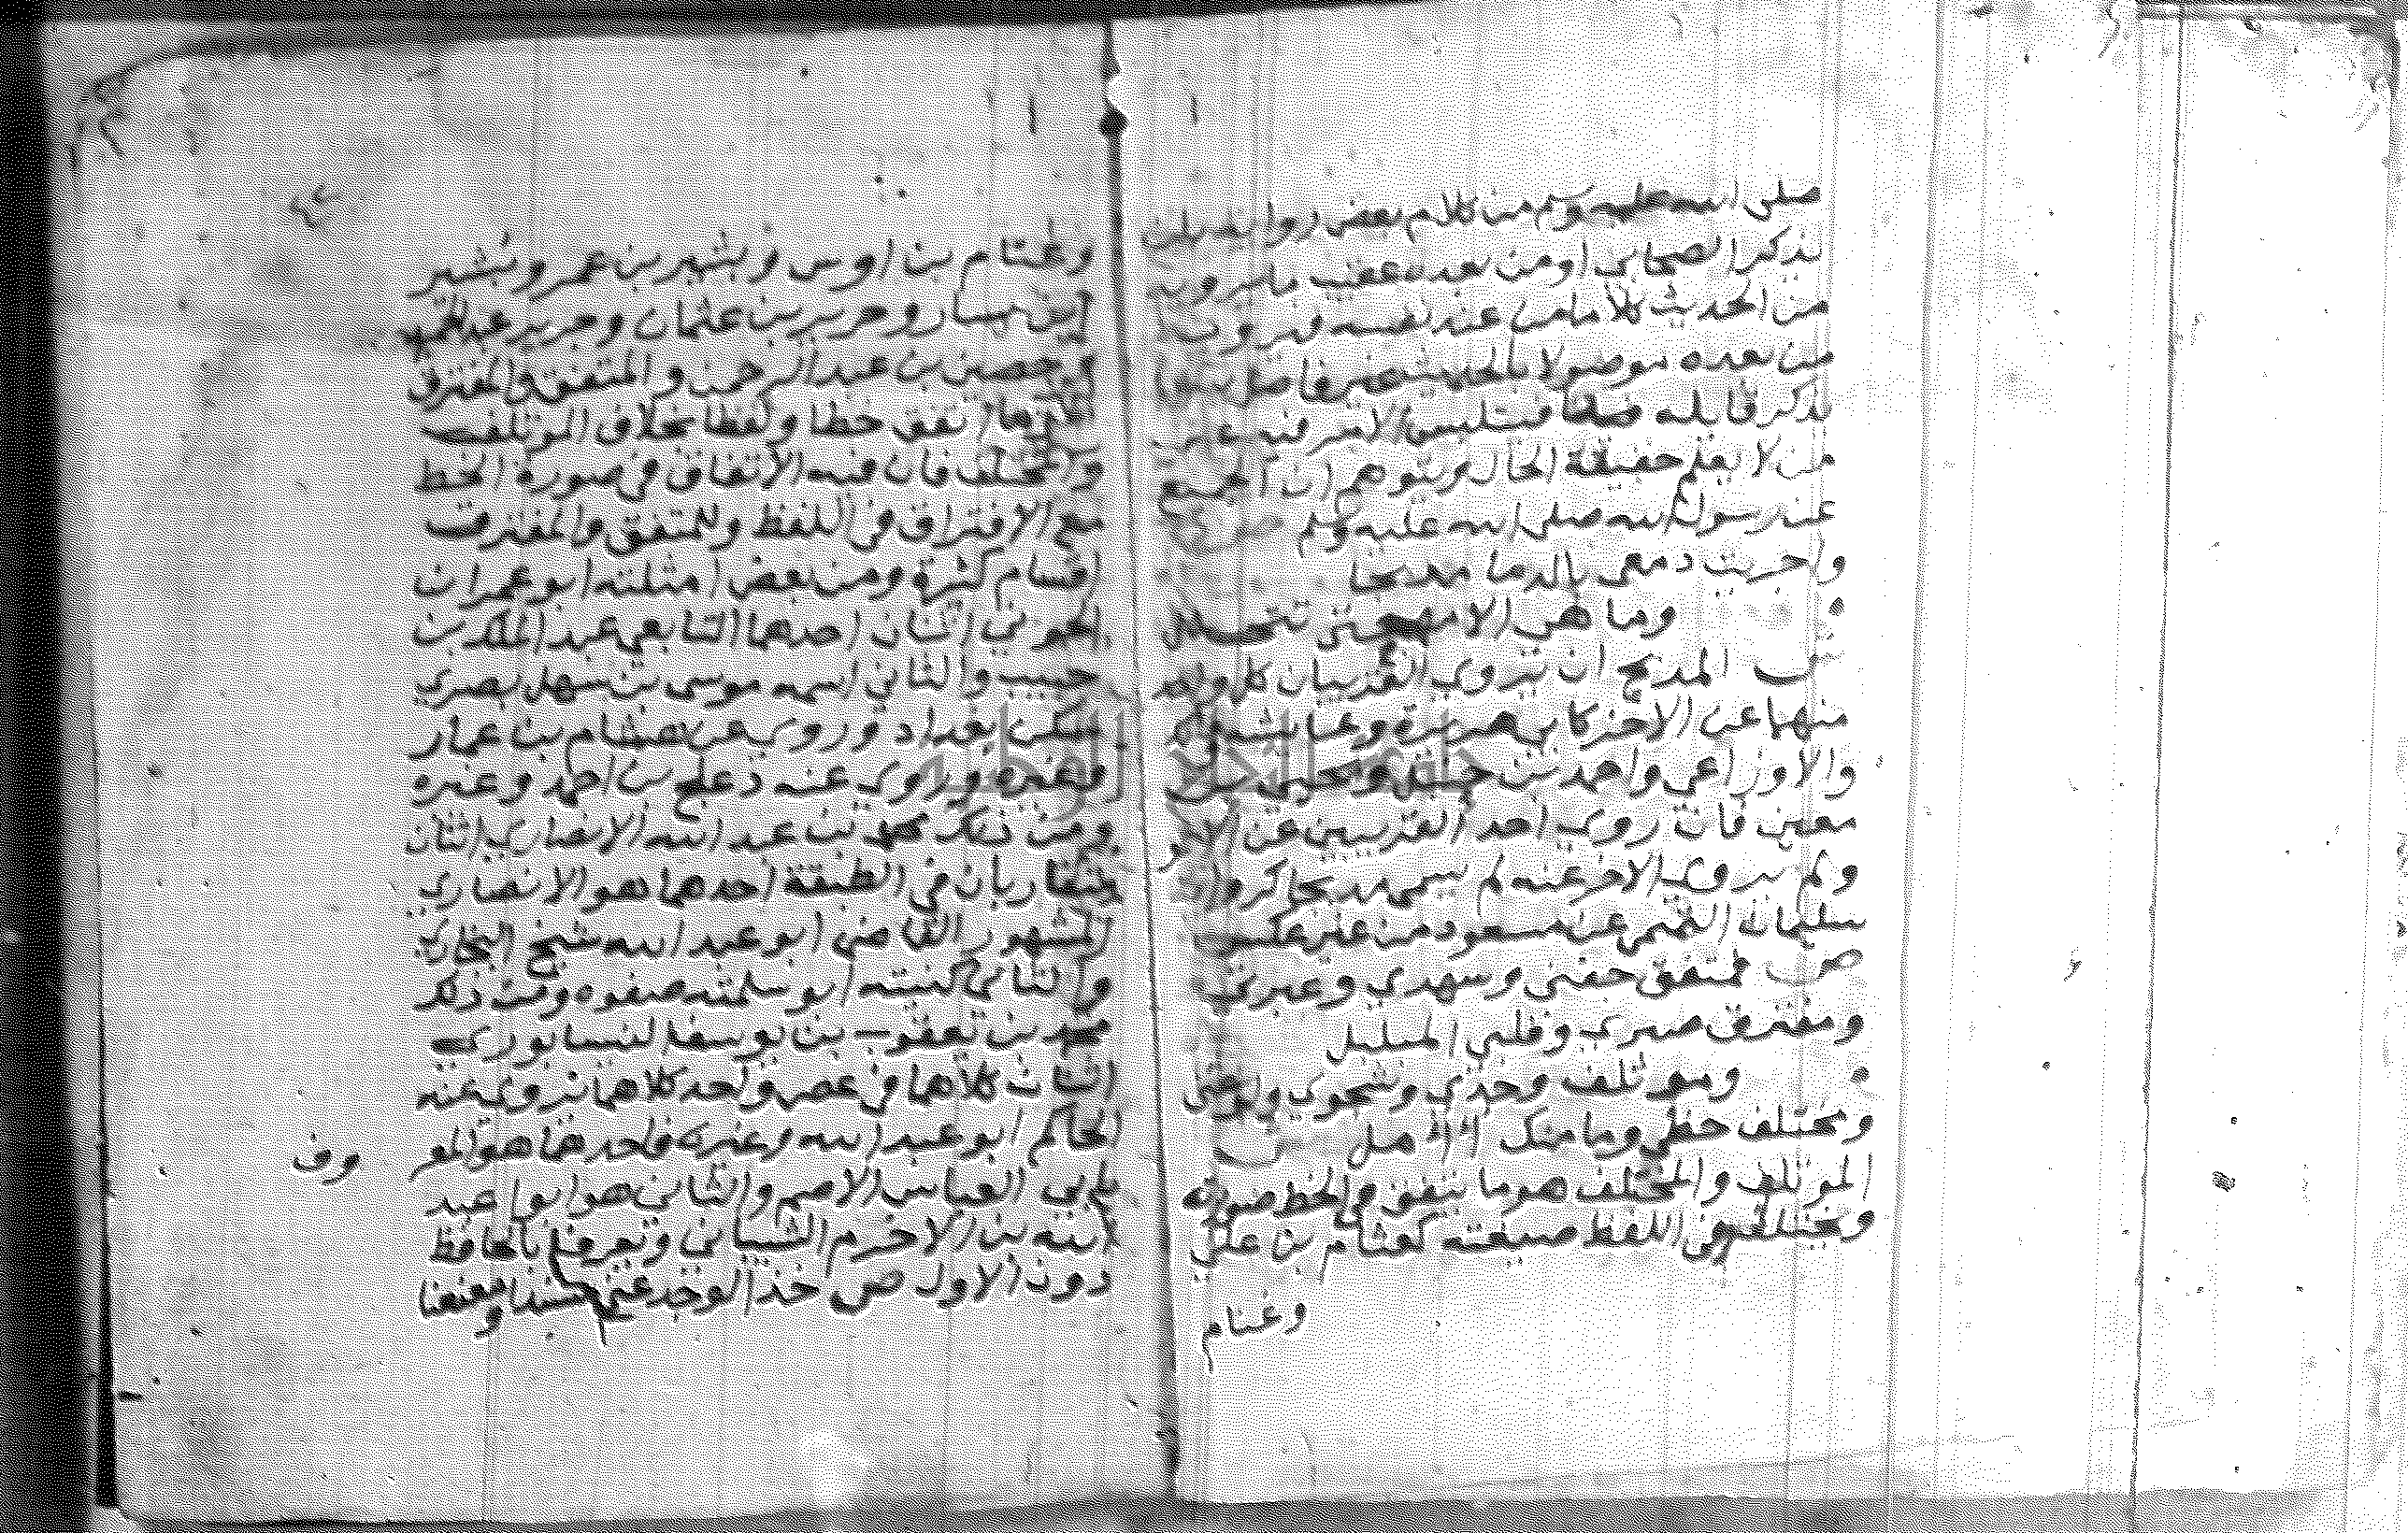 صلى الله عليه وسلم من كلام بعض رواته بان
يذكر الصحابي اومن بعده عقيب ما يرويه
من الحديث كلاما من عند نفسه فيرويه
من بعده موصولا بالحديث غير فاصل بينهما
بذكر قايله فيلتبس الامر فيه على
من لا يعلم حقيقة الحال ويتوهم ان الجميع
عند رسول الله صلى الله عليه وسلم
واجريت دمعي بالدما مدبجا
وما هي الا مهجتي تتحلل
المدبج ان يروي القرينان كل واحد
منهما عن الاخر كابي هريرة وعايشة
والاوزاعي واحمد بن حنبل ويحيى بن
معين فان روى احد القرينين عن الاخر
ولم يروي الاخر عنه لم يسمى مدبجا كرواية
سليمان التيمي عن مسعود من غير عكس
فمتفق جفني وسهدي وعبرتي
ومفترق صبري وقلبي المبلبل
ومؤتلف وجدي وشجوي ولوعتي
ومختلف حظي وما منك امل
الموتلف والمختلف هو ما يتفق في الخط صورته
ويختلف في اللفظ صيغته كعثام بن علي
وغنام
وغنام بن اوس وبشير بن عمر وبشير
ابن يسار وحرير بن عثمان وجرير
وحصين بن عبد الرحمن والمتفق والمفترق
ما اتفق خطا ولفظا بخلاف الموتلف
والمختلف فان فيه الاتفاق في صورة الخط
مع الافتراق في اللفظ وللمتفق والمفترق
اقسام كثيرة ومن بعض امثلته ابو عمران
الجوني اثنان احدهما التابعي عبد الملك بن
حبيب والثاني اسمه موسى بن سهل بصري
سكن بغداد وروى عن هشام بن عمار
وغيره وروى عنه دعلج بن احمد وغيره
ومن ذلك محمد بن عبد الله الانصاري اثنان
متقاربان في الطبقة احدهما هو الانصاري
المشهور القاضي ابو عبد الله شيخ البخاري
والثاني كنيته ابو سلمة ضعفوه ومن ذلك
محمد بن يعقوب بن يوسف النيسابوري
اثنان كلاهما في عصر واحد كلاهما يروي عنه
الحاكم ابو عبد الله وغيره فاحدهما هو المعر
وف
بابي العباس الاصم والثاني هو ابو عبد
الله بن الاخرم الشيباني ويعرف بالحافظ
دون الاول ص خذ الوجد عني مسندا ومعنعنا